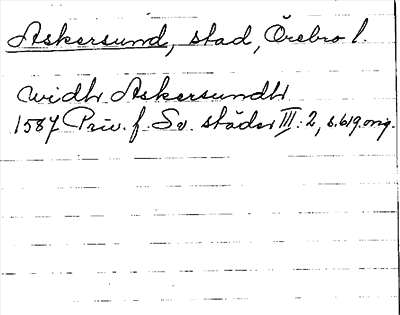 Askersund, stad, Örebro l.
widh Askersundh
1587 Priv. f. Sv. städer III: 2, s. 619. orig.